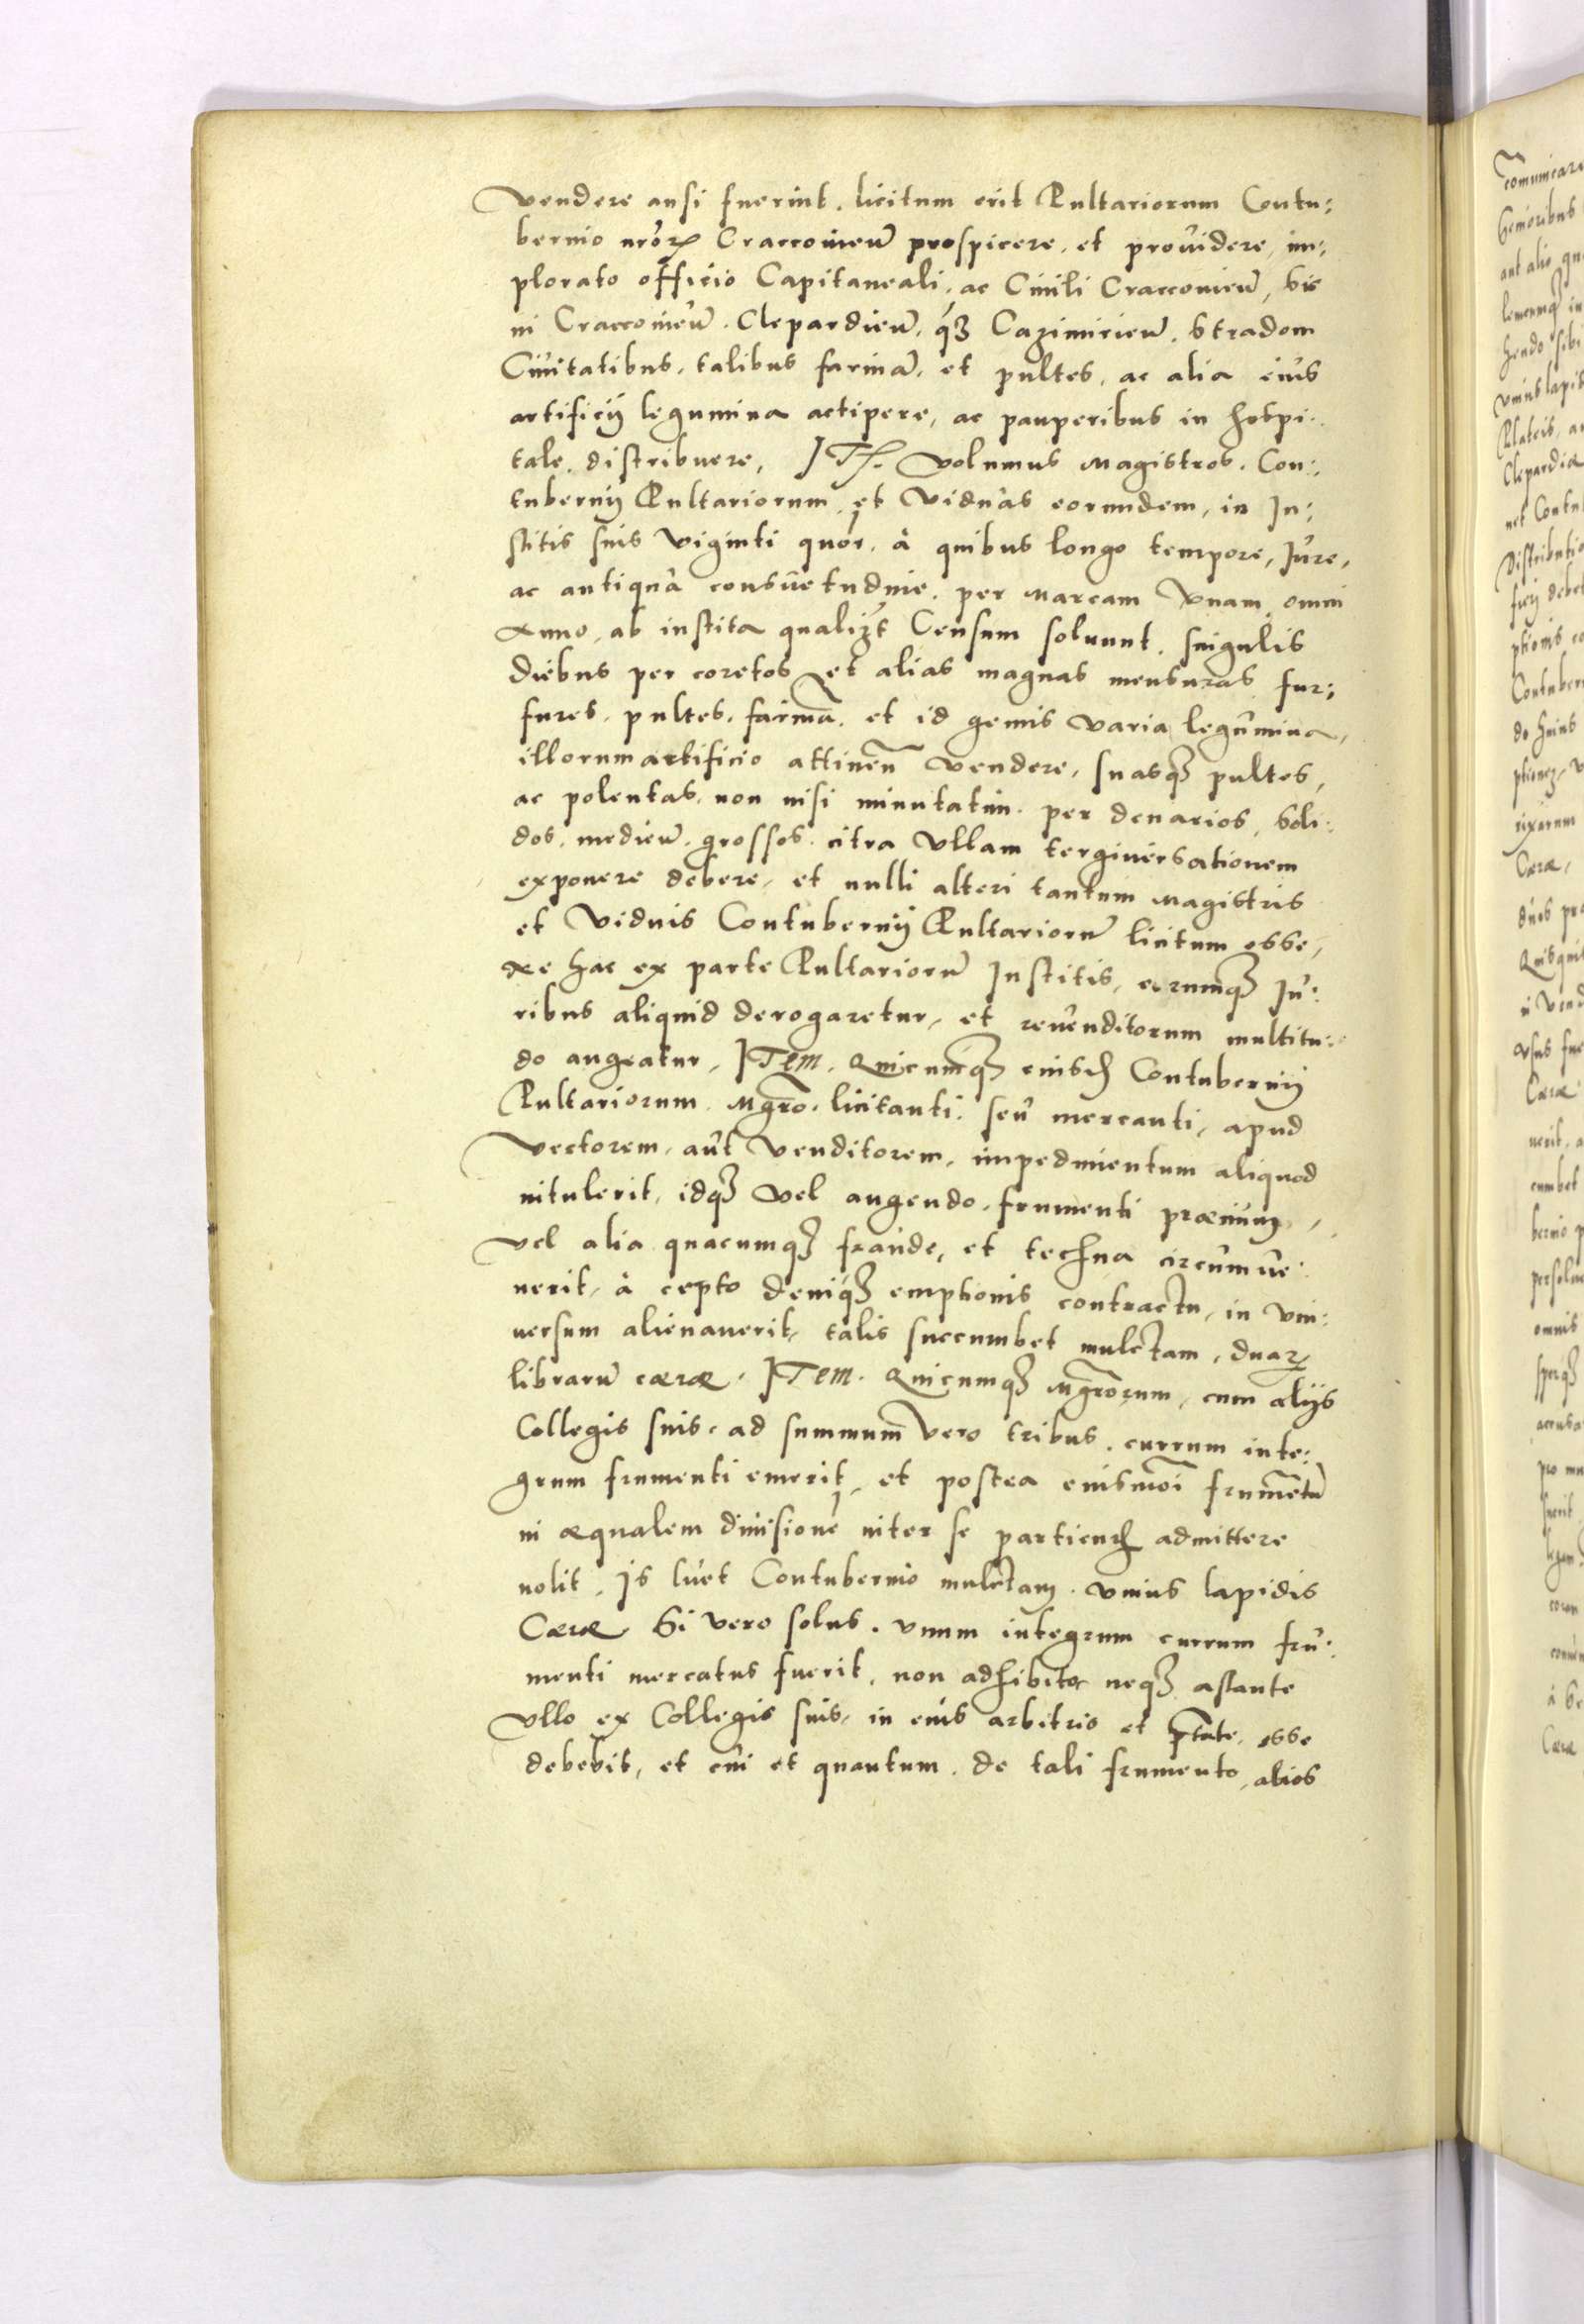 Vendere ausi fuerint. licitum erit Pultariorum Contu:
bernio nrõrꝝ Craccovieñ prospicere, et providere, im:
plorato officio Capitaneali, ac Civili Craccovieñ, sic
in Craccovieñ. Clepardieñ. q́ꝫ Cazimirieñ. Stradom
Civitatibus, talibus farinã, et pultes, ac alia eius
artificij legumina accipere, ac pauperibus in hospi:
tale distribuere, ITẽ. Volumus Magistros. Con:
tubernij Pultariorum, et Viduas eorundem, in In:
stitis suis Viginti quõr, à quibus longo tempore, Iure,
ac antiqua consuetudine, per Marcam Vnam, omni
Anno, ab instita qualiꝫt Censum soluunt, singulis
diebus per coretos et alias magnas mensuras fur:
fures, pultes, farinã, et id genus varia legumina,
illorum artificio attineñ Vendere, suasqꝫ pultes,
ac polentas, non nisi minutatim, per denarios, Soli:
dos, medieũ, grossos, citra Vllam tergiuersationem
exponere debere, et nulli alteri tantum Magistris
et Viduis Contubernij Pultariorũ licitum esse,
Ne hac ex parte Pultariorũ Institis, eorumqꝫ Iu:
ribus aliquid derogaretur, et revenditorum multitu:
do augeatur, ITEM. Quicumqꝫ eiusd Contubernij
Pultariorum Mgrõ. licitanti. seu mercanti, apud
Vectorem, aut Venditorem, impedimentum aliquod
intulerit, idqꝫ Vel augendo, frumenti præcium,
Vel alia quacumqꝫ fraude, et techna circumue:
nerit, à cepto deniqꝫ emptionis contractu, in Vni:
uersum alienauerit, talis succumbet mulctam, duarꝝ
librarũ ceræ. ITEM. Quicumqꝫ Mgrõrum, cum alijs
Collegis suis, ad summum Vero tribus, currum inte:
grum frumenti emerit, et postea eiusmõi frumẽtũ
in æqualem divisionẽ inter se partiend admittere
nolit, Is luet Contubernio mulctam, Vnius lapidis
Ceræ. Si Vero solus. Vnum integrum currum fru:
menti mercatus fuerit, non adhibito neqꝫ astante
Vllo ex Collegis suis, in eius arbitrio et ptãte, esse
debebit, et cui et quantum, de tali frumento, alios